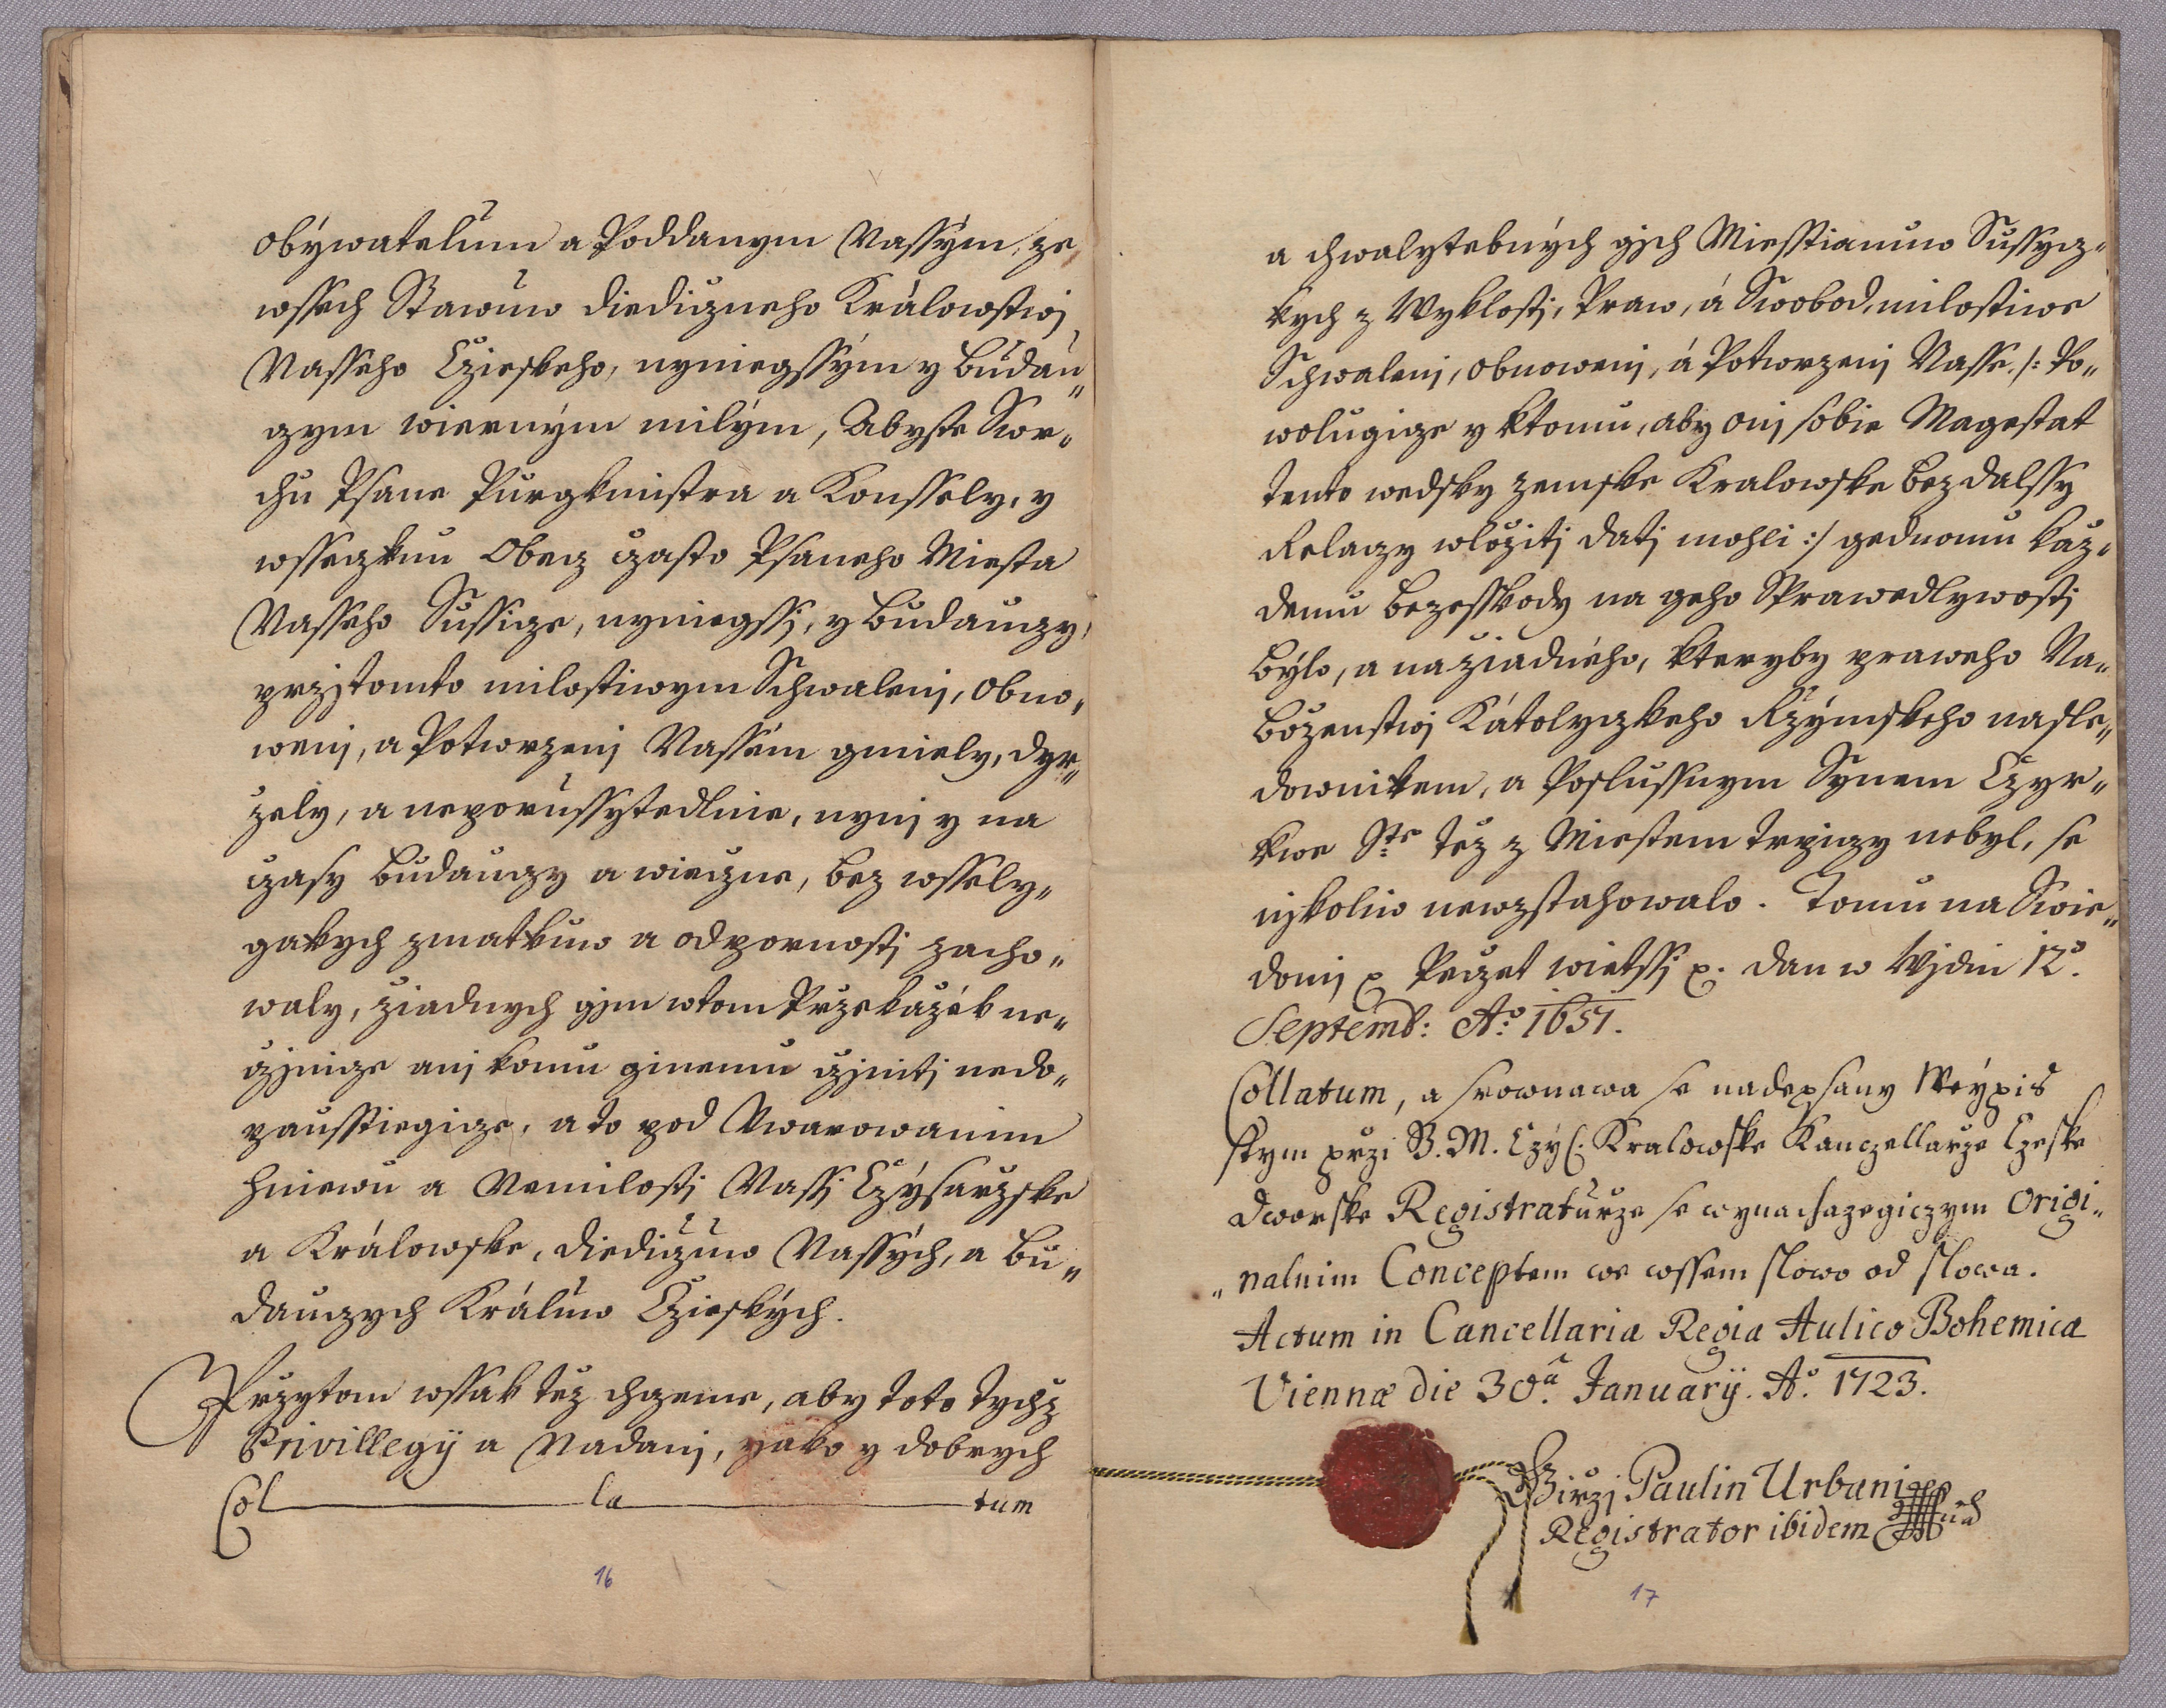 obýwatelům a Poddanym Nassým, ze
wssech Stawůw diediczneho Králowstwj
Nasseho Cžieskeho, nyniegssým y budau„
czym wierným milým, Abyste Swr„
chu Psane Purgkmistra a Konssely, y
wsseczknu Obecz cžasto Psaneho Miesta
Nasseho Sussicze, nyniegssj, y budauczy,
przjtomto milostiwym Schwalenj, obno„
wenj, a Potwrzenj Nassem gmiely, dyr„
žely, a neporussytedlnie, nynj y na
cžasy budauczy a wiecžne, bez wssely„
gakych zmatkuw a odpornostj zacho„
waly, žiadnych gjm wtom Przekažek ne„
cžjnicze anj komu ginemu cžjnitj nedo„
paustiegicze, a to pod Uwarowanim
hniewu a Nemilostj Nassj Cžýsarzske
a Králowske, diedicžůw Nassých, a bu„
dauczych Králůw Cžieských.
Przytom wssak też chczeme, aby toto tychž
Privillegij a Nadanj, yako y dobrych
Col la tum
16
a chwalytebných gjch Miesstianuw Sussycz„
kych z Wyklostj, Praw, á Swobod, milostiwe
Schwalenj, obnowenj, á Potwrzenj Nasse /: Po„
wolugicze y ktomu, aby onj sobie Magestat
tento wedsky zemske Kralowske bez dalssy
Relaczy wložitj datj mohli :/ gednomu kaž„
demu bezesskody na geho Sprawedlywostj
býlo, a na žiadného, kteryby praweho Na„
boženstwj Kátolyczkeho Rzýmskeho nasle„
downikem, a Poslussnym Synem Czyr„
kwe Ste též z Miestem trpiczy nebyl, se
nijkoliw newzstahowalo. Tomu na Swie„
domj ꝛc Pecžet wietssj ꝛc. dan w Wjdni 12o.
Septemb: Ao 1651.
Collatum, a srownawa se nadepsany Weýpis
stym przi G. M. Czýs: Kralowske Kanczellarze Czeske
dworske Registraturze se wynachazegiczym Origi„
„nalnim Conceptem we wssem slowo od slowa.
Actum in Cancellaria Regia Aulico Bohemica
Viennæ die 30a. Januarij. Ao. 1723.
Girzj Paulin Urbani
Registrator ibidem
17